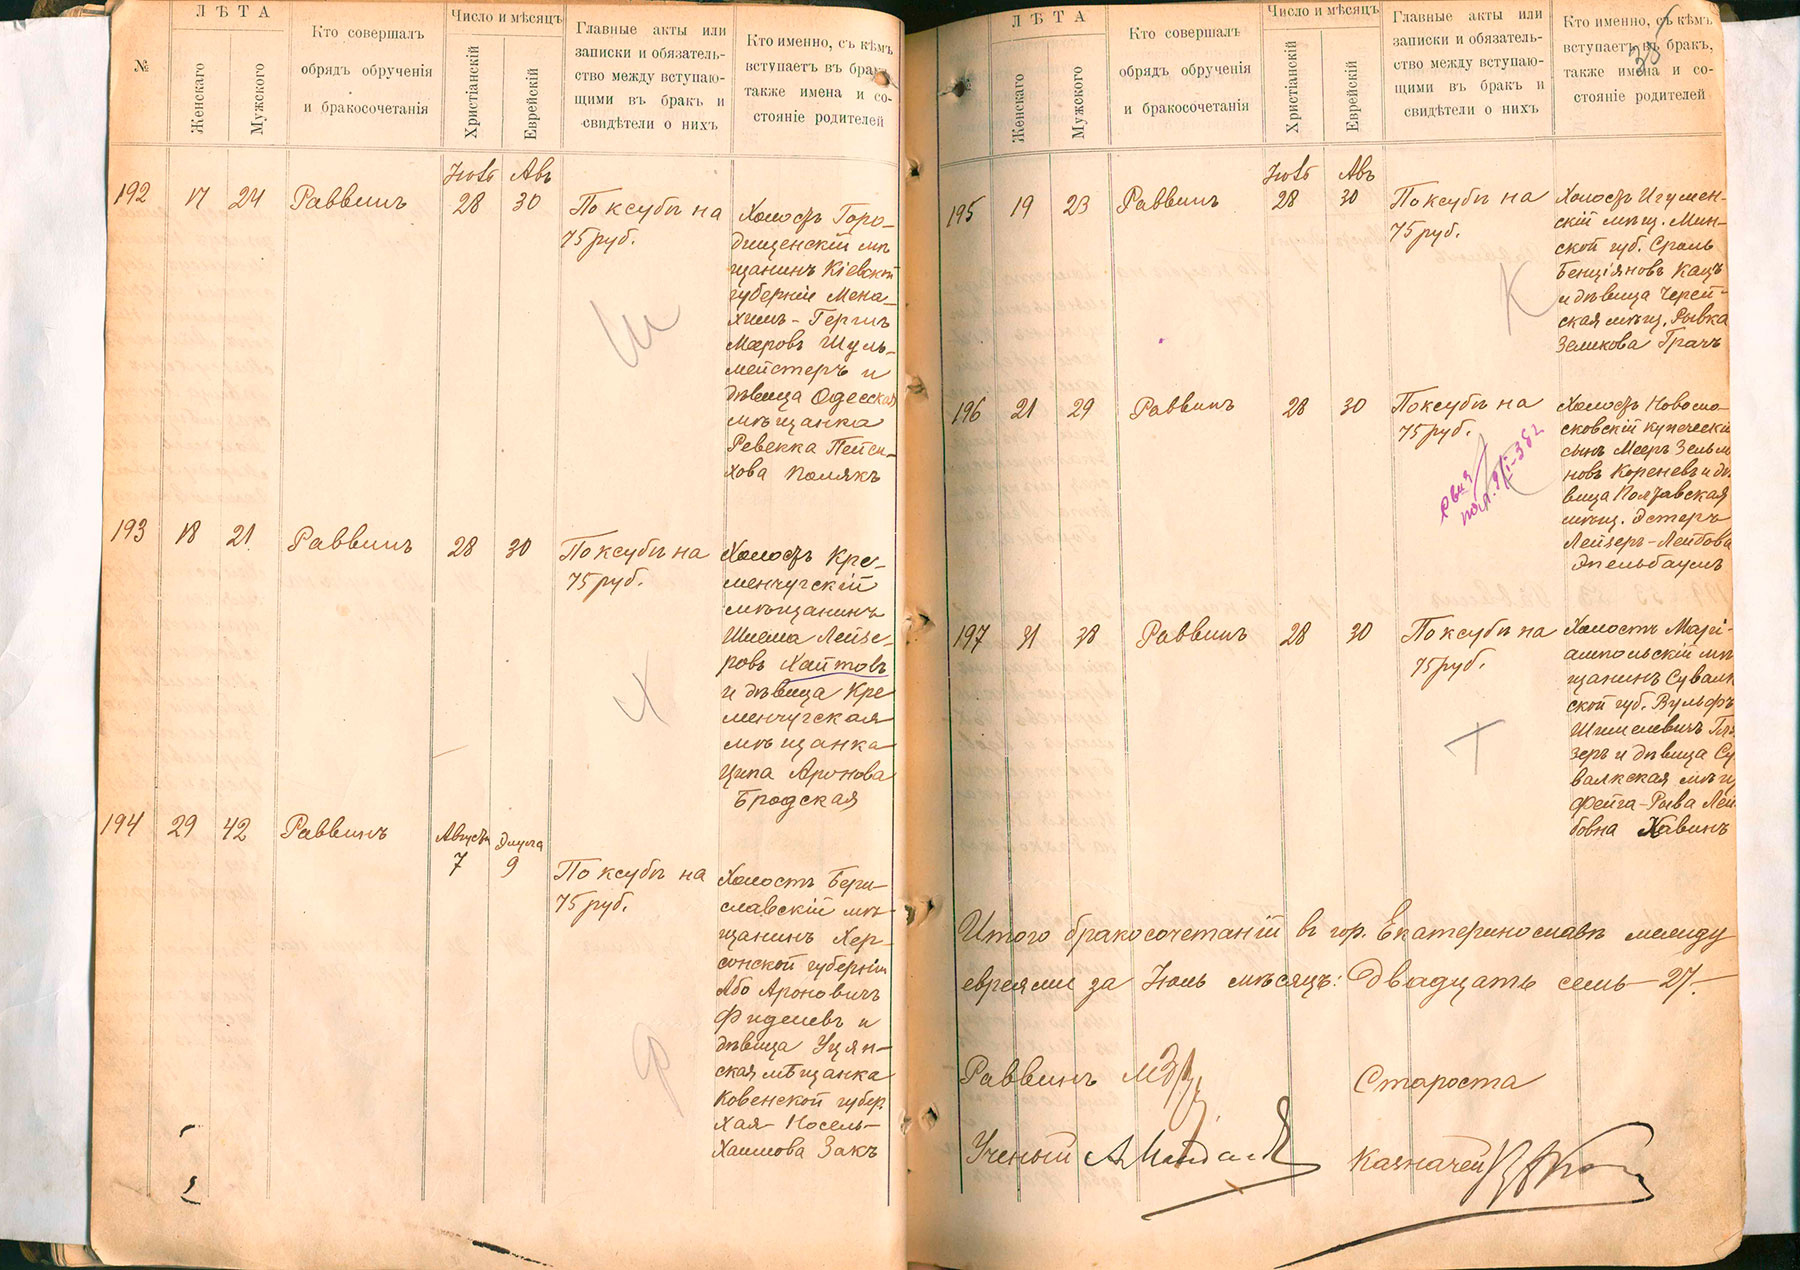 №
ЛѢТА
Женскаго
Мужского
Кто совершалъ
обрядъ обрученія
и бракосочетанія
Число и мѣсяцъ
Христіанскій
Еврейскій
Главные акты или
записки и обязатель-
ство между вступаю-
щими въ бракъ и
свидѣтели о нихъ
Кто именно, съ кѣмъ
вступаетъ въ бракъ,
также имена и со-
стояніе родителей
192 17 24 Раввинъ Іюль 28 Авъ 30
По ксубѣ на
75 руб.
Холостъ Горо-
дищенскій мѣ
щанинъ Кіевской
губерніи Мена-
химъ-Гершъ
Мееровъ Шуль-
мейстеръ и
дѣвица Одесская
мѣщанка
Ревекка Пейса-
хова Полякъ
Ш
193 18 21 Раввинъ 28 30
По ксубѣ на
75 руб.
Холостъ Кре-
менчугскій
мѣщанинъ
Шлема Лейзе-
ровъ Хаитовъ
и дѣвица Кре
менчугская
мѣщанка
Ципа Аронова
Бродская
Х
194 29 42 Раввинъ Августа 7 Элула 9
По ксубѣ на
75 руб.
Холостъ Бери-
славскій мѣ-
щанинъ Хер-
сонской губерніи
Або Ароновичъ
Фиделевъ и
дѣвица Уцян-
ская мѣщанка
Ковенской губер.
Хая-Носель-
Хаимова Закъ
Ф
35
ЛѢТА
Женскаго
Мужского
Кто совершалъ
обрядъ обрученія
и бракосочетанія
Число и мѣсяцъ
Христіанскій
Еврейскій
Главные акты или
записки и обязатель-
ство между вступаю-
щими въ бракъ и
свидѣтели о нихъ
Кто именно, съ кѣмъ
вступаетъ въ бракъ,
также имена и со-
стояніе родителей
195 19 23 Раввинъ Іюль 28 Авъ 30
По ксубѣ на
75 руб.
Холостъ Игумен-
скій мѣщ. Мин-
ской губ. Сроль
Бенціяновъ Кацъ
и дѣвица Черей-
ская мѣщ. Рывка
Зеликова Грачъ
К
196 21 29 Раввинъ 28 30
По ксубѣ на
75 руб.
Холостъ Новомо-
сковскій купеческій
сынъ Мееръ Зельма
новъ Кореневъ и дѣ
вица Полтавская
мѣщ. Эстеръ
Лейзеръ-Лейбова
Эпельбаумъ
197 31 38 Раввинъ 28 30
По ксубѣ на
75 руб.
Холостъ Марі-
ампольскій мѣ
щанинъ Сувалк
ской губ. Вульфъ
Шимелевичъ
зеръ и дѣвица Су
валкская мѣщ
Фейга-Рыва Лей
бовна Хавинъ
Итого бракосочетаній въ гор. Екатеринославѣ между
евреями за Іюль мѣсяцъ: Двадцать семь - 27-
Раввинъ
Староста
Ученый
Казначей